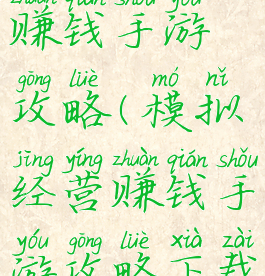 zhuàn qián shǒu yóu
赚钱手游
gōng lüè mó nǐ
攻略(模拟
jīng yíng zhuàn qián shǒu
经营赚钱手
yóu gōng lüè xià zài
游攻略下载